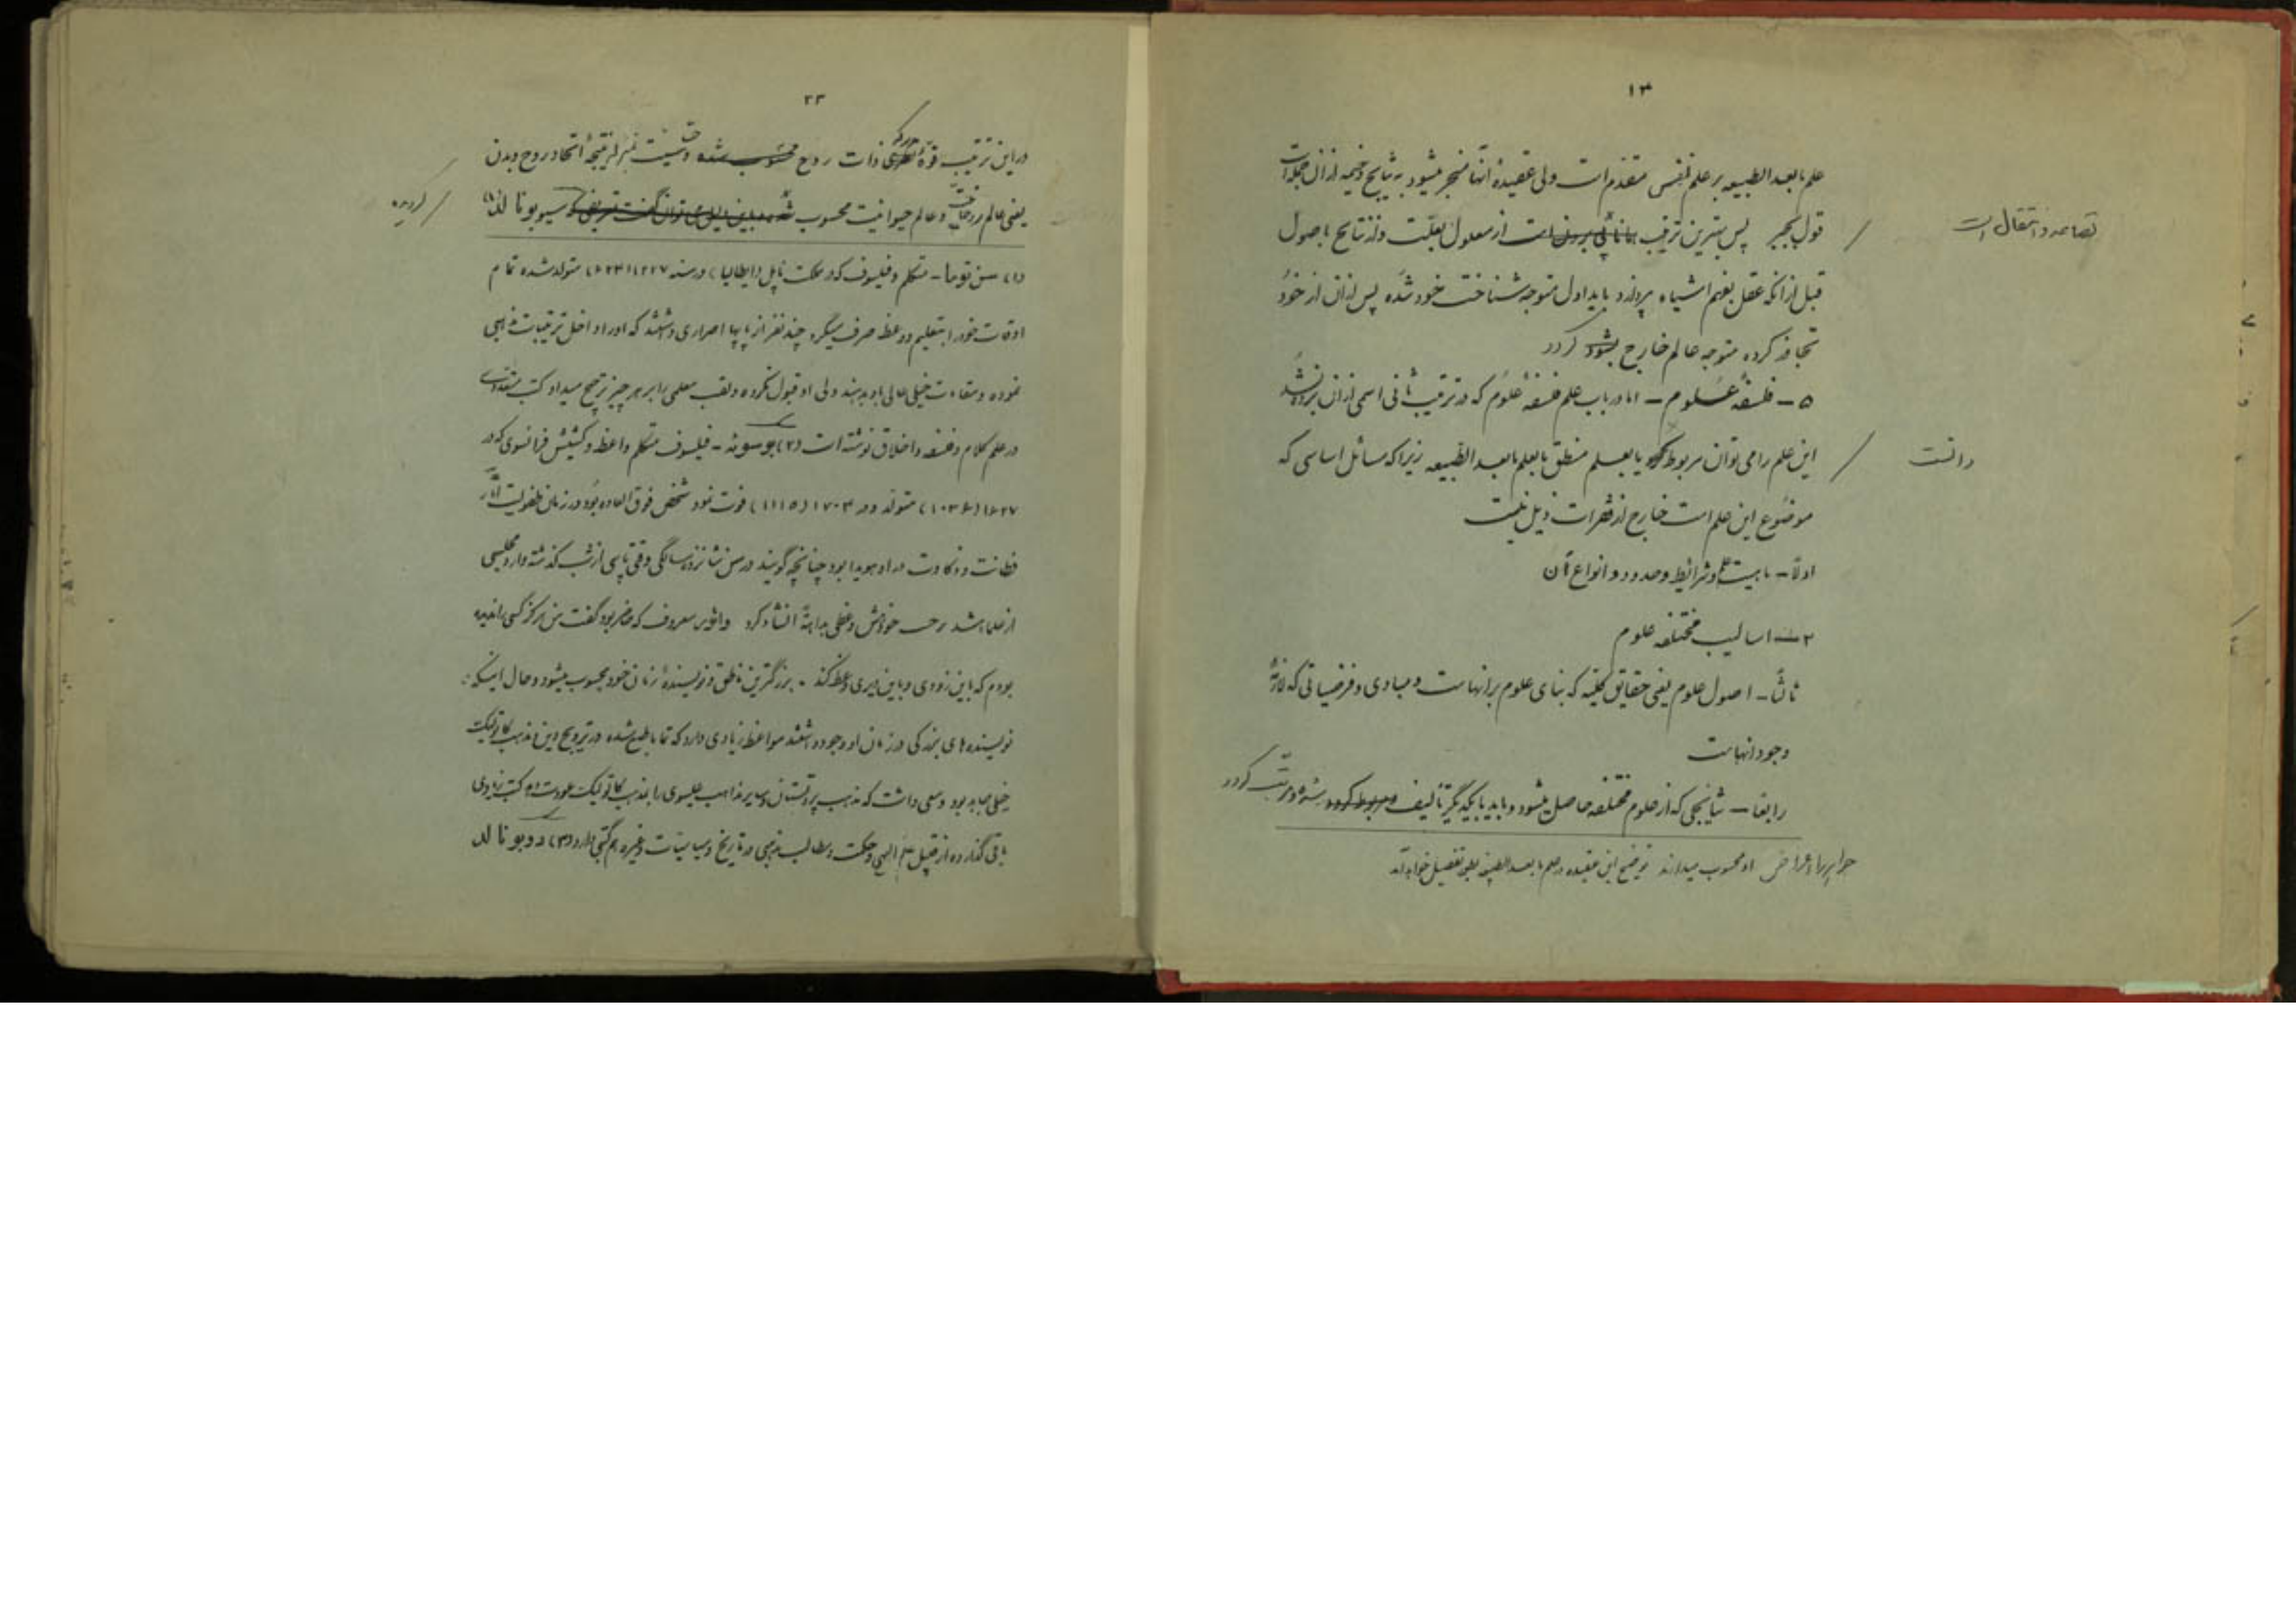 ۱۳
علم مابعد الطبیعه بر علم نفس مقدم است ولی عقیده آنها منجر میشود به نتایج وخیمه از آن جمله است
قول بجبر پس بهترین ترتیب از معلول بعلت و از نتایج باصول
تصاعد و انتقال است
قبل از آنکه عقل بفهم اشیاء پردازد باید اول متوجه شناخت خود شده پس از آن از خود
تجاوز کرده متوجه عالم خارج بشود گردد
۵ – فلسفهٔ علوم – اما در باب علم فلسفهٔ علوم که در ترتیب ثانی اسمی از آن برده نشد
این علم را می توان مربوط یا بعلم منطق یا بعلم مابعد الطبیعه زیرا که مسائل اساسی که
دانست
موضوع این علم است خارج از فقرات ذیل نیست
اولاً – ماهیت علم و شرائط و حدود و انواع آن
۲ – اسالیب مختلفه علوم
ثالثاً – اصول علوم یعنی حقایق کلیه که بنای علوم بر آنهاست و مبادی و فرضیاتی که لازمهٔ
وجود آنهاست
رابعاً – نتایجی که از علوم مختلفه حاصل میشود و باید با یکدیگر تألیف و مربوط کرده شود و مرتب گردد
او محسوب میدارند توضیح این عقیده در علم مابعد الطبیعه بطور تفصیل خواهد آمد
۲۳
در این ترتیب قوهٔ ذات روح محسوب شده و نتیجهٔ اتحاد روح و بدن
یعنی عالم و عالم حیوانیت محسوب شده مسیو بونالد
گردیده
(۱) سن توما – متکلم و فیلسوف که در مملکت ناپل (ایطالیا) در سنه ۱۲۲۷ متولد شده تمام
اوقات خود را بتعلیم و وعظ صرف میکرد چند نفر از پاپها اصراری داشتند که او را داخل ترتیبات مذهبی
نموده و مقامات خیلی عالی باو بدهند ولی او قبول نکرده و لقب معلمی را بر هر چیز ترجیح میداد کتب متعدده
در علم کلام و فلسفه و اخلاق نوشته است (۲) بوسوئه – فیلسوف متکلم واعظ و کشیش فرانسوی که در
۱۶۲۷ (۱۰۳۶) متولد و در ۱۷۰۳ (۱۱۱۵) فوت نمود شخص فوق العاده بود در زمان طفولیت آثار
فطانت و ذکاوت در او هویدا بود چنانچه گویند در سن شانزده سالگی وقتی پاسی از شب گذشته وارد مجلسی
از علما شد بر حسب خواهش وعظی بداهةً انشاد کرد معروف که حاضر بود گفت من هرگز کسی را ندیده
بودم که باین زودی و باین دیری وعظ کند – بزرگترین ناطق و نویسندهٔ زمان خود محسوب میشود و حال اینکه
نویسنده های بزرگی در زمان او وجود داشتند مواعظ زیادی دارد که تماماً طبع شده در ترویج دین و مذهب کاتولیک
خیلی مجاهد بود و سعی داشت که مذهب پروتستان و سایر مذاهب عیسوی را بمذهب کاتولیک عودت دهد کتب زیادی
باقی گذارده از قبیل علم الهی و حکمت و مطالب مذهبی و تاریخ و سیاسیات و غیره هم کتبی دارد (۳) دو بونالد